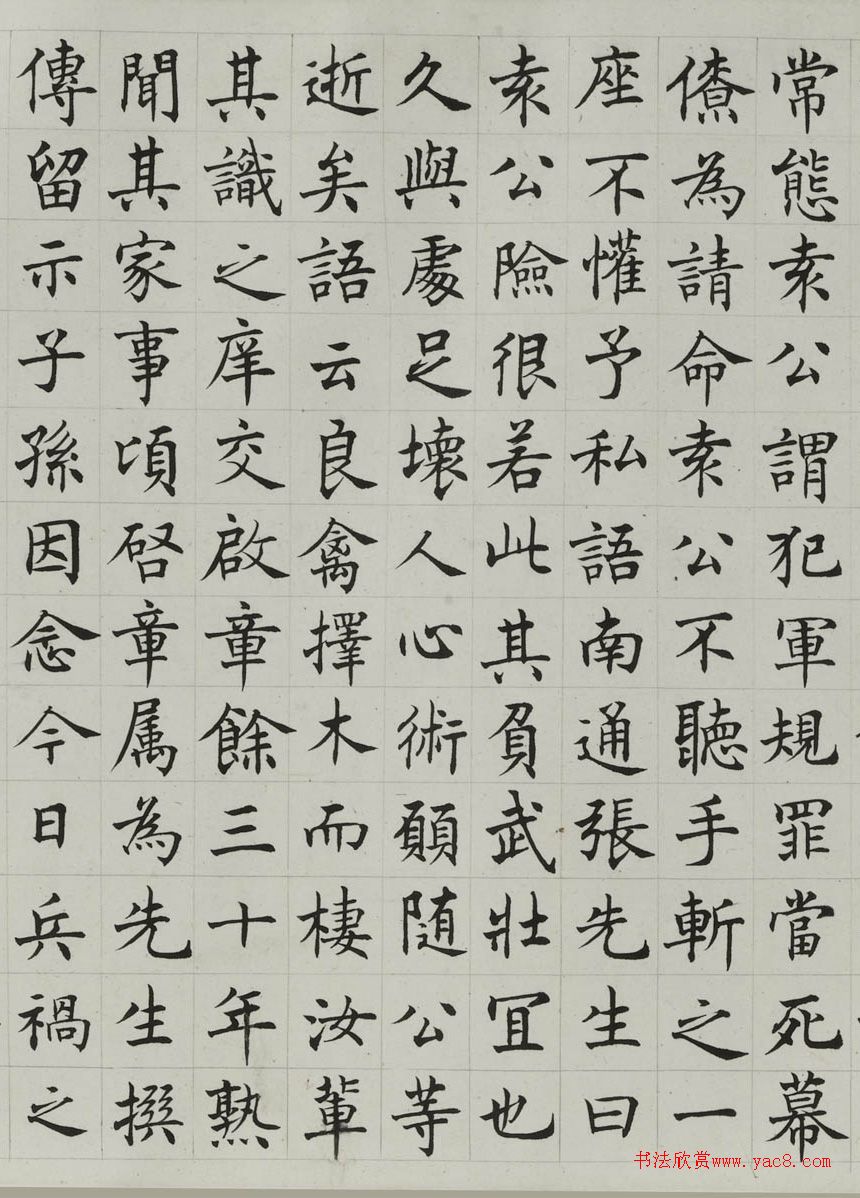 常態袁公謂犯軍規罪當死幕
僚為請命袁公不聽手斬之一
座不懽予私語南通張先生曰
袁公險很若此其負武壯宜也
久與處足壞人心術願随公等
逝矣語云良禽擇木而棲汝軰
其識之庠交啟章餘三十年熟
聞其家事頃啓章属為先生撰
傳留示子孫因念今日兵禍之
书法欣赏www.yac8.com